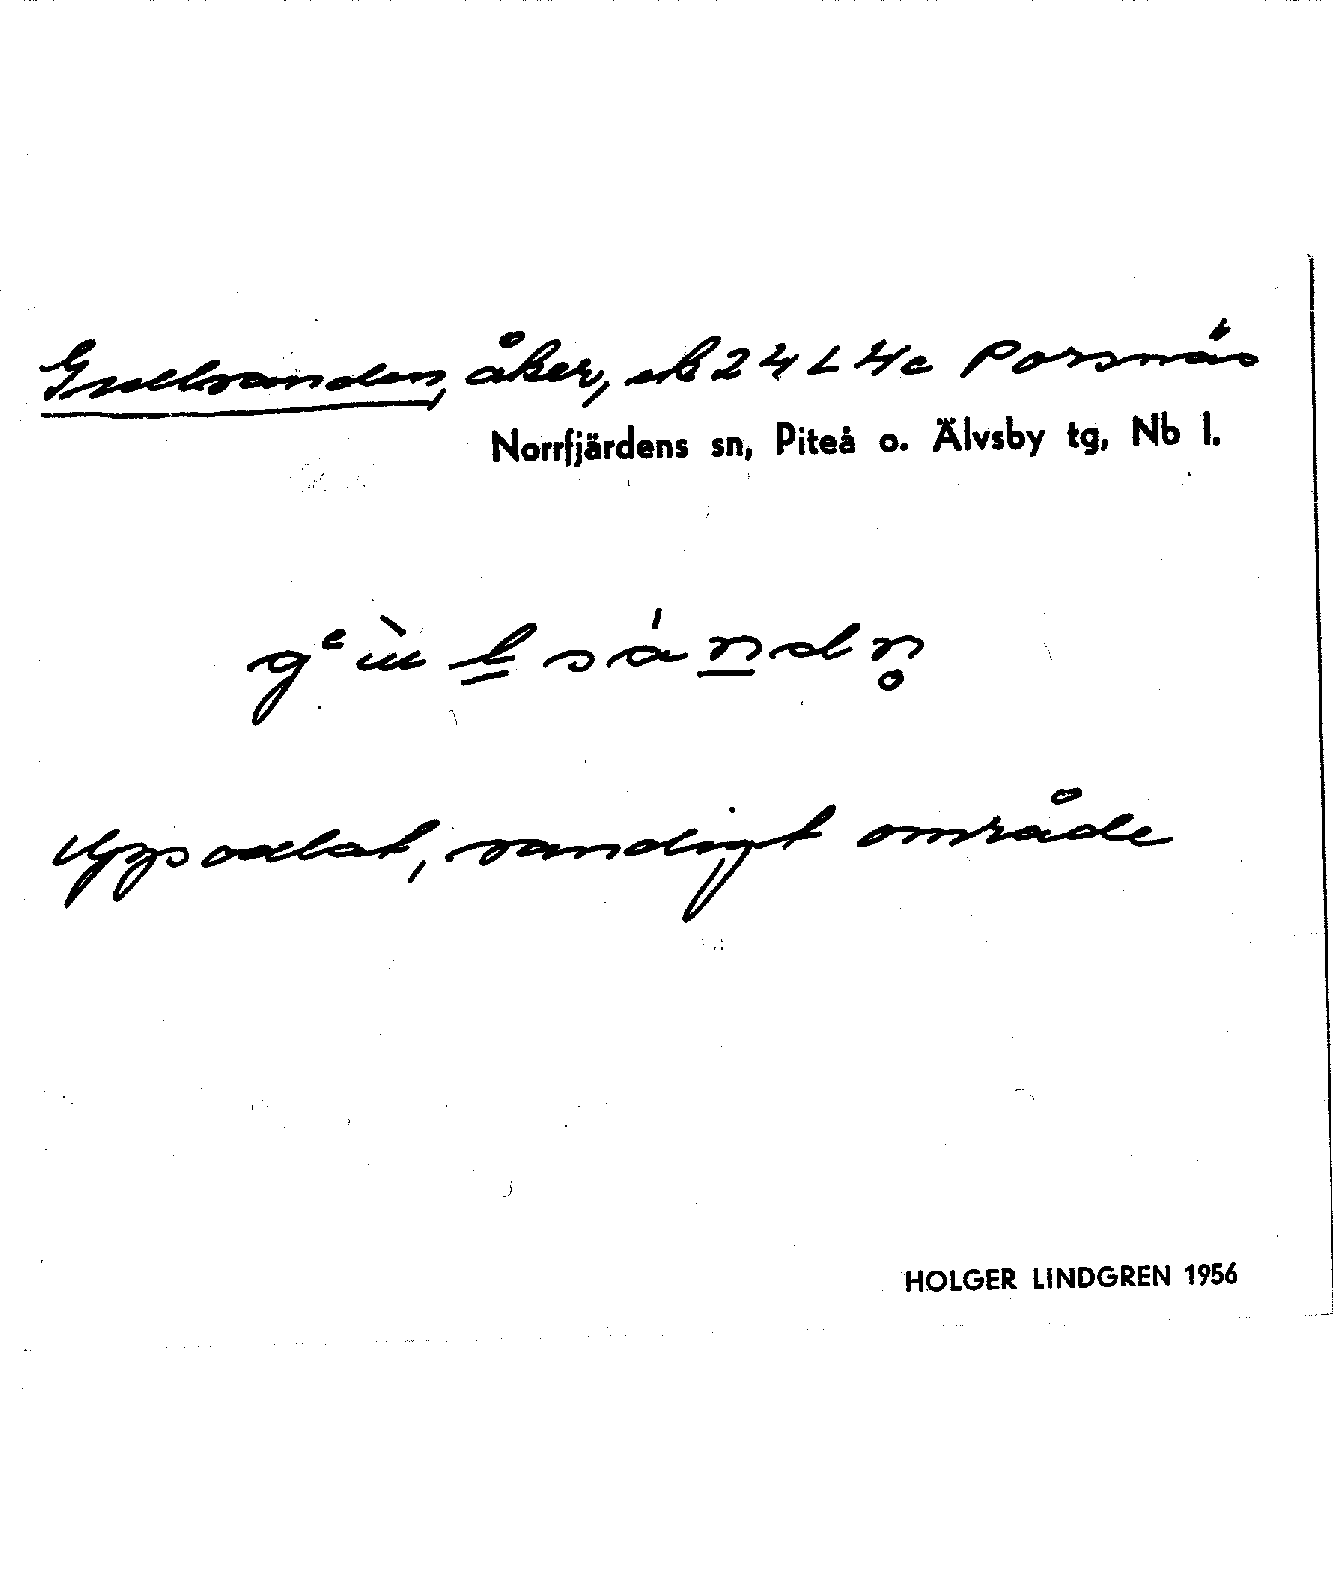 Gullsanden, åker, ek 24 L 4c Porsnäs
Norrfjärdens sn, Piteå o. Älvsby tg, Nb l.
Uppodlat, sandigt område
HOLGER LINDGREN 1956